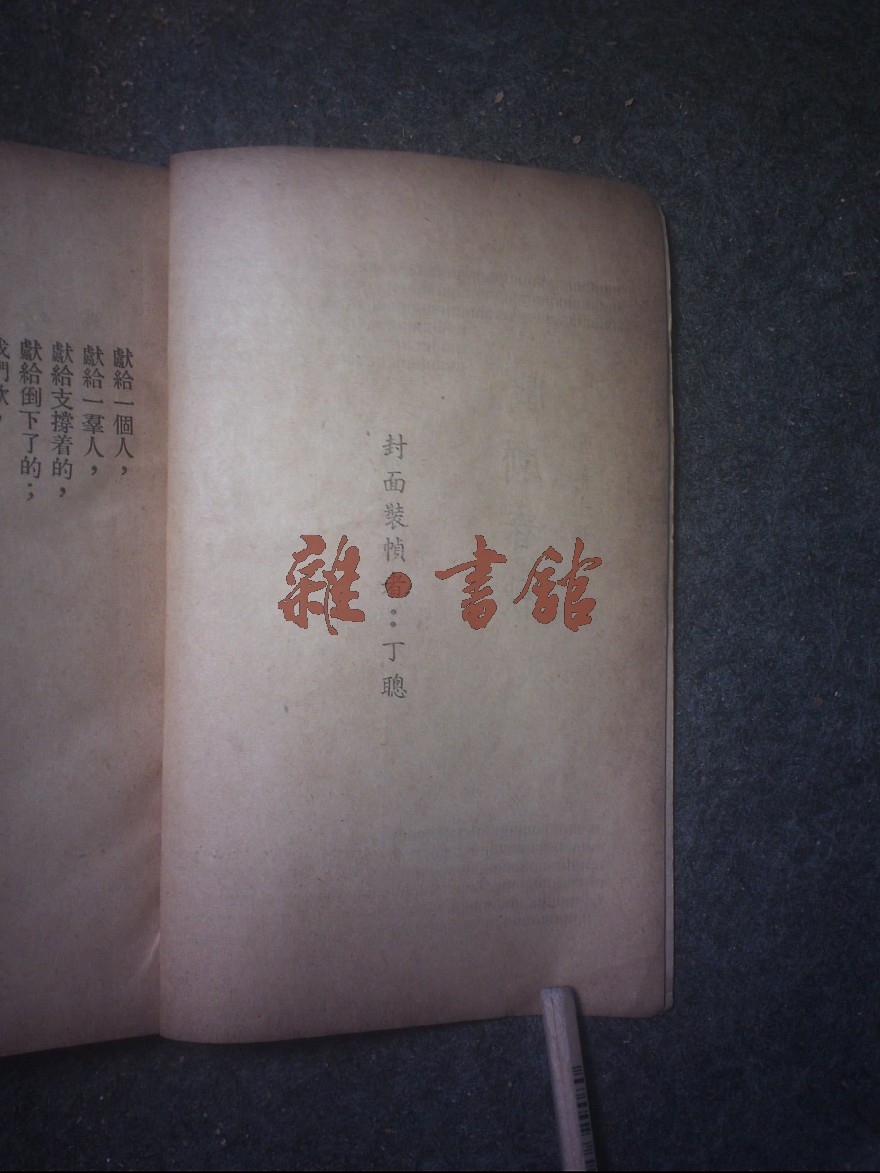 封面裝幀：丁聰
雜書館
獻給一個人，
獻給一羣人，
獻給支撐着的，
獻給倒下了的；